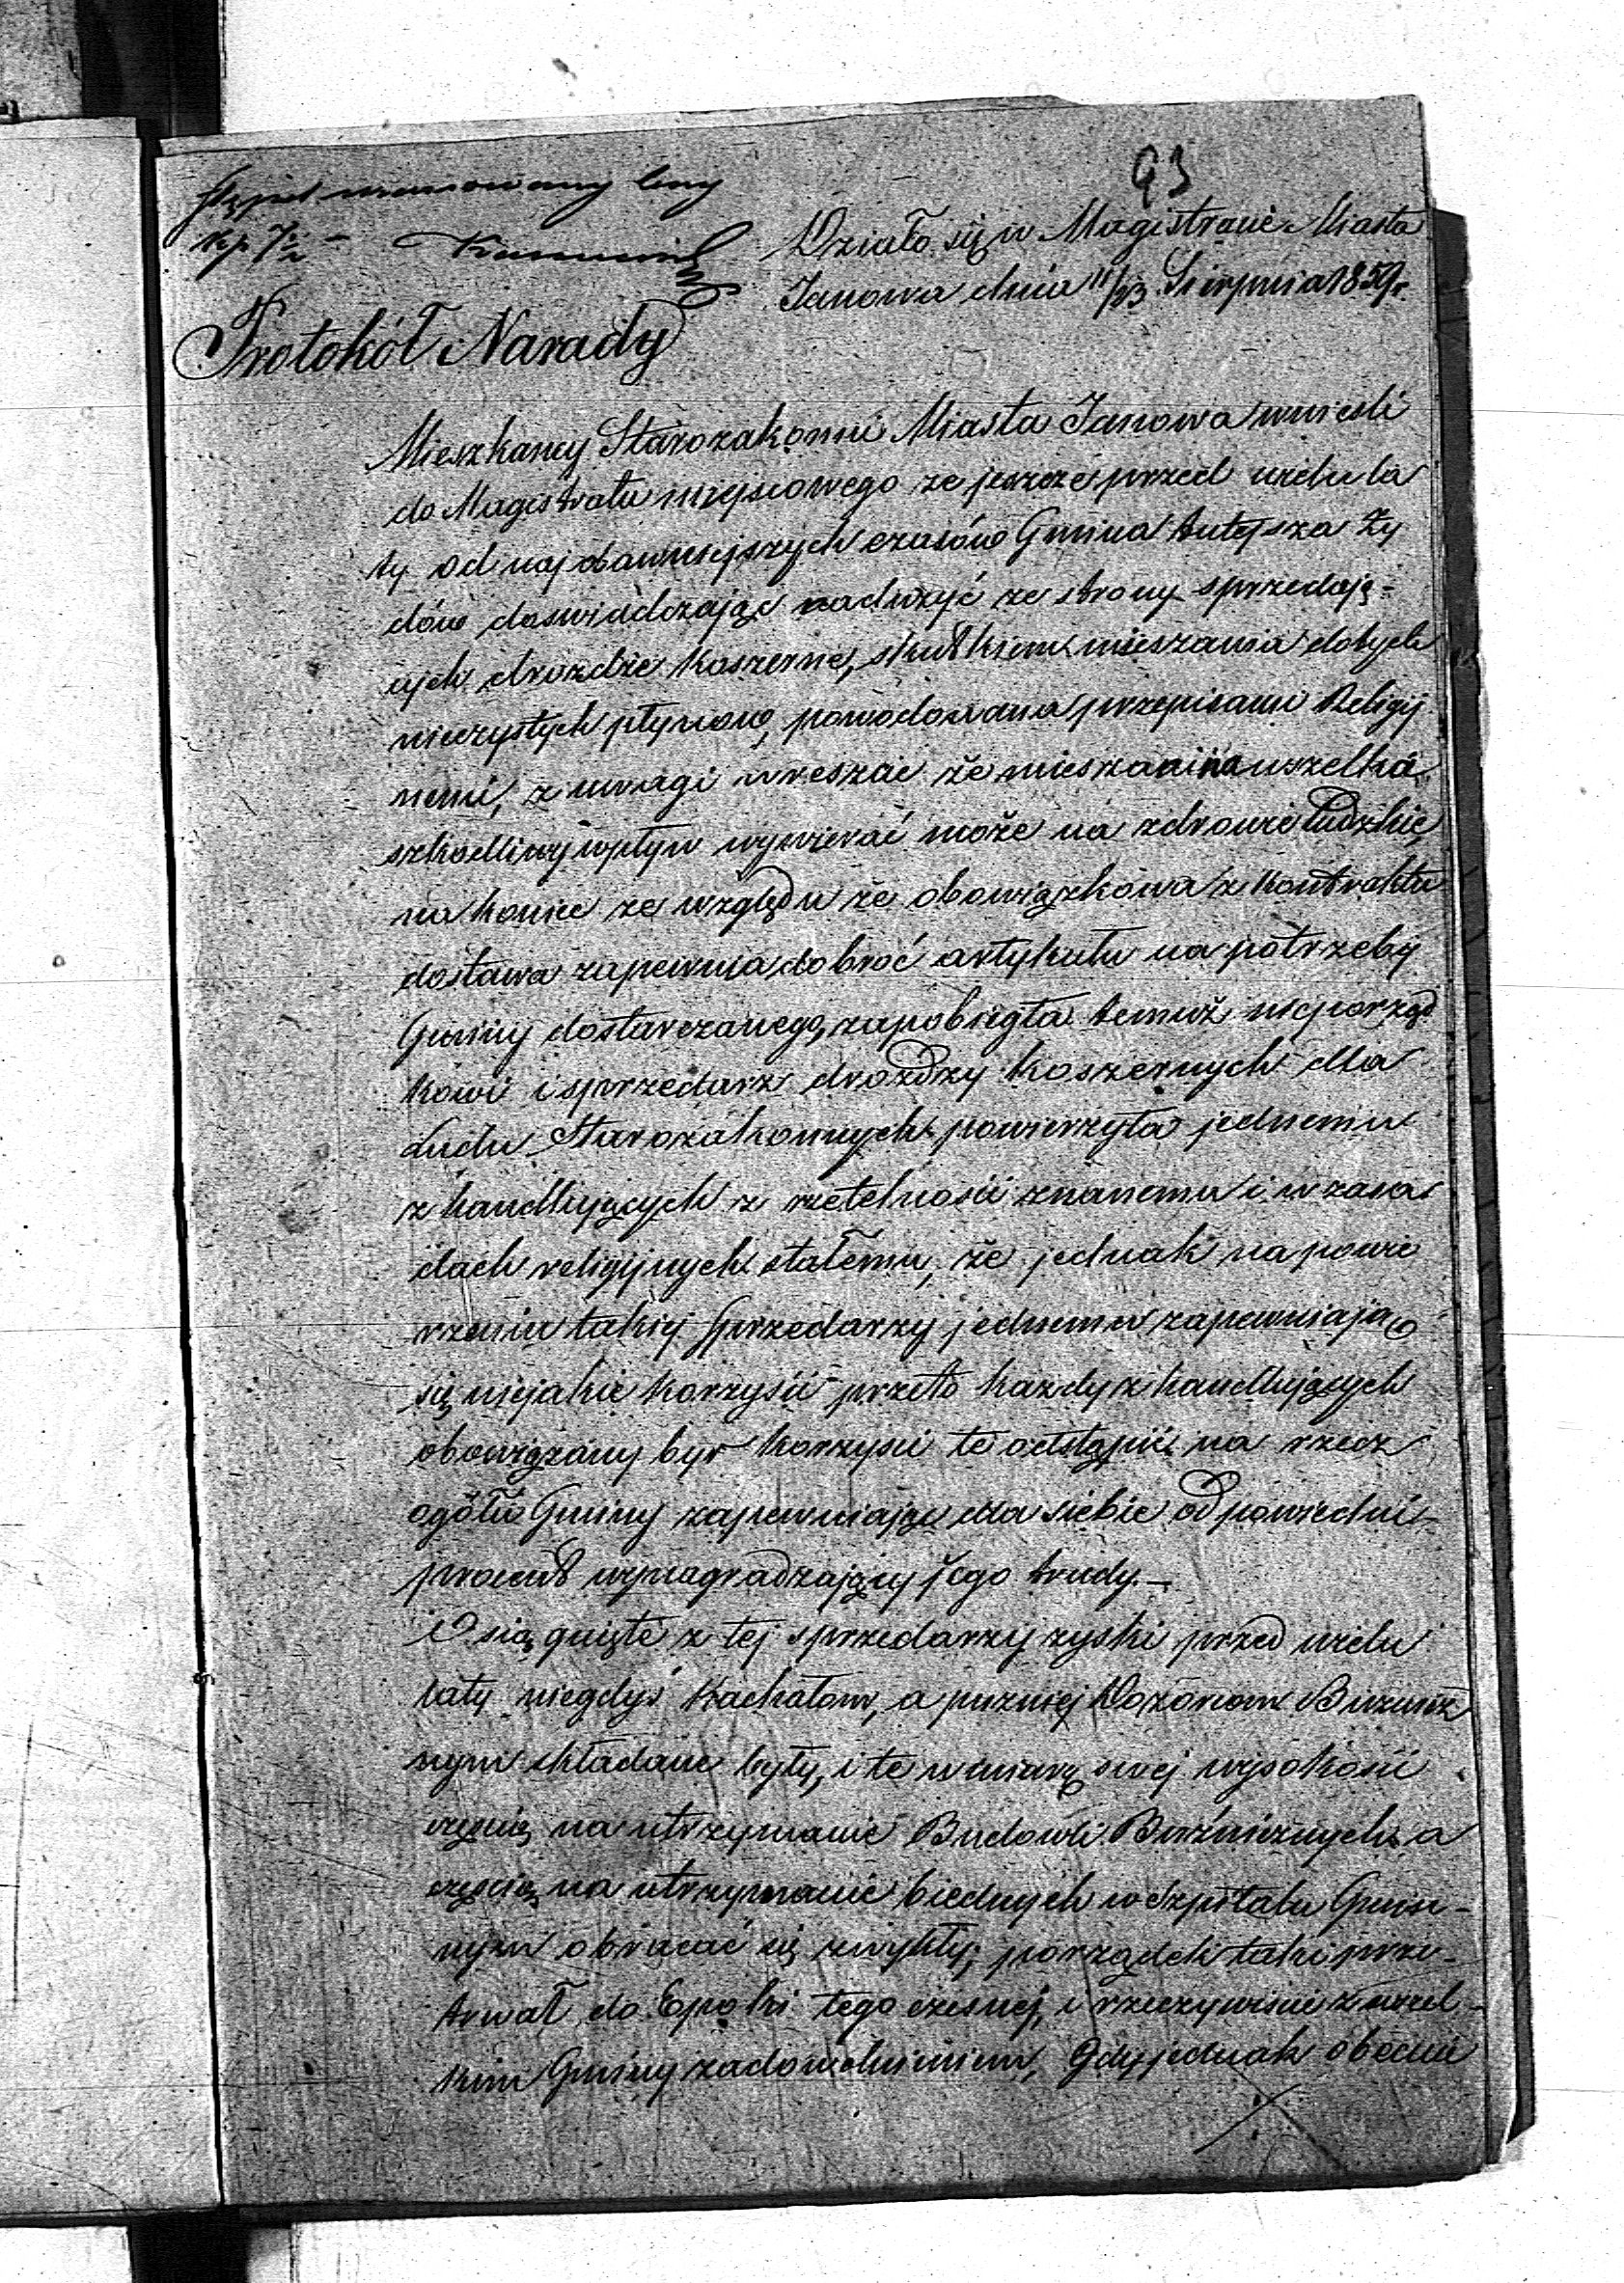 93
Stępel skasowany ceny
Kp. 7½
Działo się w Magistracie Miasta
Janowa dnia 11/23 Sierpnia 1859r.
Protokół Narady
Mieszkancy Starozakonni Miasta Janowa wniesli
do Magistratu miejscowego że jeszcze przed wielu la
ty od najdawniejszych czasów Gmina tutejsza Ży
dów doswiadczając nadużyć ze strony sprzedają-
cych drożdże Koszerne, skutkiem mieszania do tych
nieczystych płynow, powodowana przepisami Religij
nemi, z uwagi wreszcie że mieszanina wszelka
szkodliwy wpływ wywierać może na zdrowie ludzkie,
na koniec ze względu że obowiązkowa z Kontraktu
dostawa zapewnia dobroć artykułu na potrzeby
Gminy dostarczanego, zapobiegła temuż nieporząd
kowi i sprzedarz drożdży Koszernych dla
Ludu Starozakonnych powierzyła jednemu
z handlujących z rzetelności znanemu i w zasa
dach religijnych stałemu, że jednak na powie
rzeniu takiej sprzedarzy jednemu zapewniają
się niejakie Korzyści przeto każdy z handlujących
obowiązany był Korzysci te odstąpić na rzecz
ogółu Gminy zapewniając dla siebie odpowiedni
procent wynagradzający jego trudy.—
Osiągnięte z tej sprzedarzy zyski przed wielu
laty niegdyś Kachałom, a puzniej Dozorom Bużnicz
nym składane były, i te w miarę swej wysokości
częscią na utrzymanie Budowli Bużnicznych a
częscią na utrzymanie biednych w Szpitalu Gmin-
nym obracać się zwykły; porządek taki prze-
trwał do Epoki tego czesnej, i rzeczywiscie z wszel-
kim Gminy zadowolnieniem, Gdy jednak obecnie